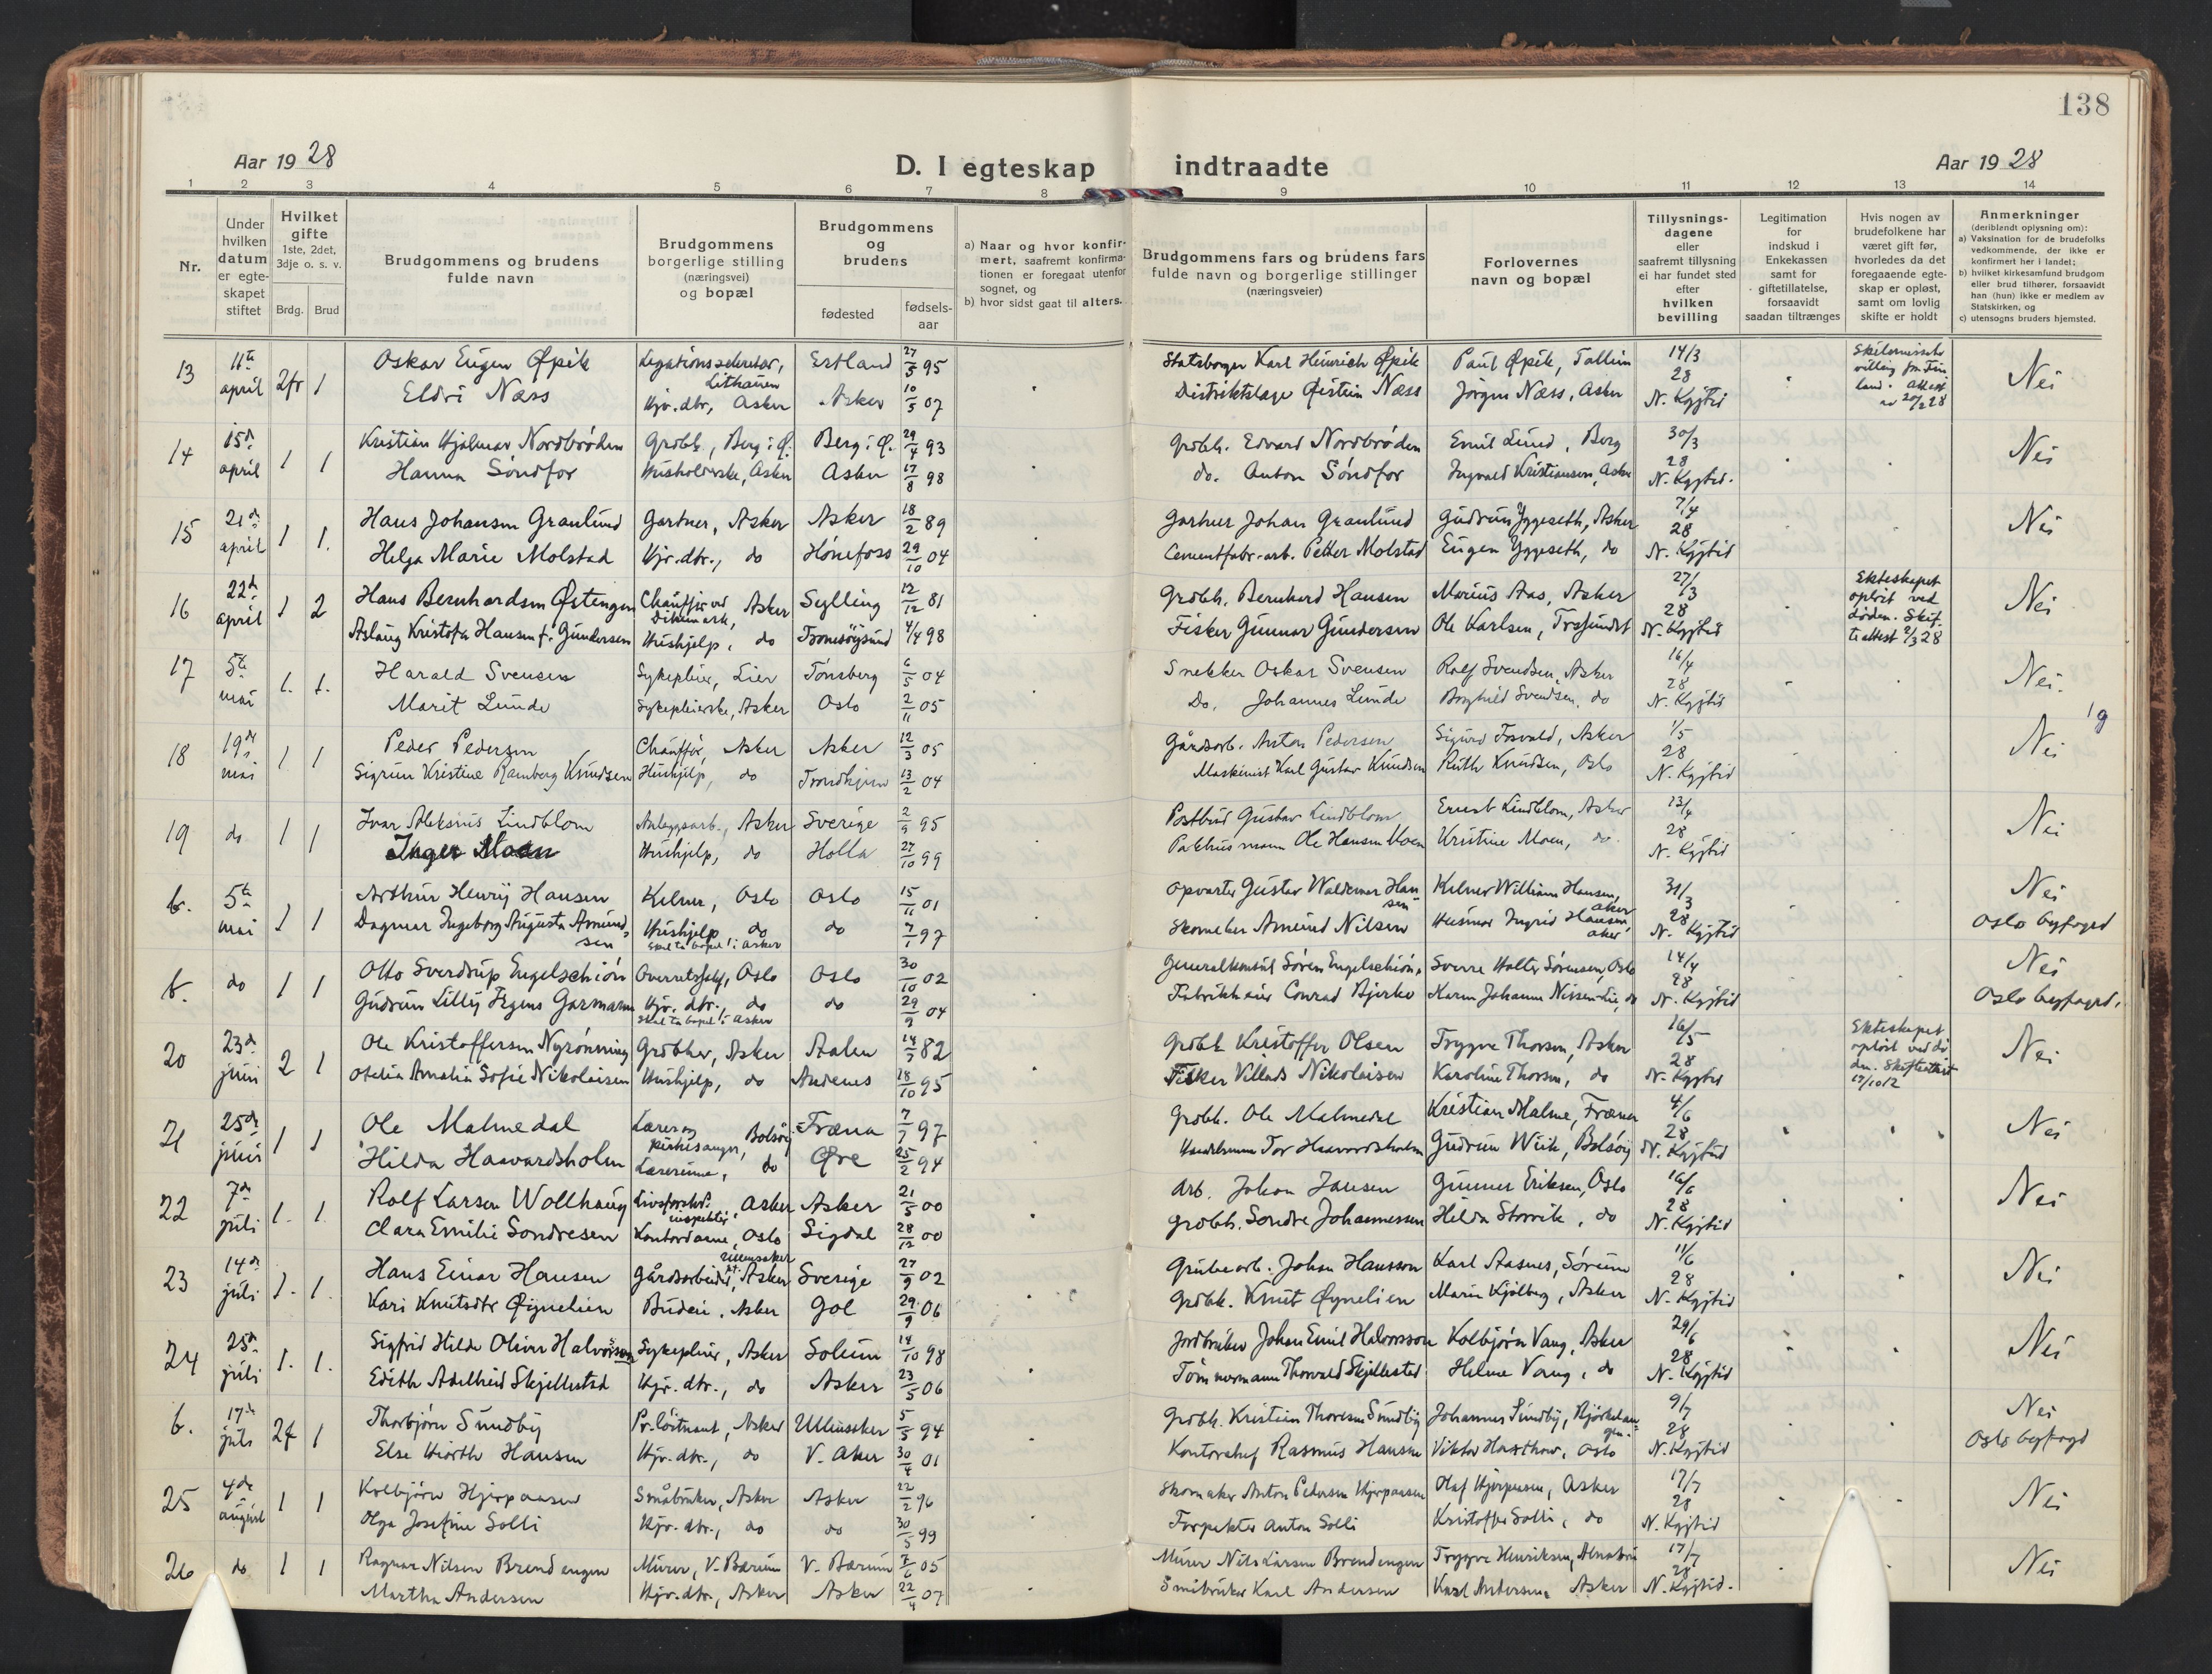 138
Aar 19 28
D. I egteskap indtraadte
Aar 19 28
1 2 3 4 5 6 7 8 9 10 11 12 13 14
Nr.
Under hvilken datum er egteskapet stiftet
Hvilket gifte 1ste, 2det, 3dje o. s. v.
Brdg. Brud
Brudgommens og brudens fulde navn
Brudgommens borgerlige stilling (næringsvei) og bopæl
Brudgommens og brudens
fødested
fødsels-aar
a) Naar og hvor konfirmert, saafremt konfirmationen er foregaat utenfor sognet, og
b) hvor sidst gaat til alters.
Brudgommens fars og brudens fars fulde navn og borgerlige stillinger (næringsveier)
Forlovernes navn og bopæl
Tillysningsdagene eller saafremt tillysning ei har fundet sted efter hvilken bevilling
Legitimation for indskud i Enkekassen samt for giftetillatelse, forsaavidt saadan tiltrænges
Hvis nogen av brudefolkene har været gift før, hvorledes da det foregaaende egteskap er opløst, samt om lovlig skifte er holdt
Anmerkninger (deriblandt oplysning om):
a) Vaksination for de brudefolks vedkommende, der ikke er konfirmert her i landet;
b) hvilket kirkesamfund brudgom eller brud tilhører, forsaavidt han (hun) ikke er medlem av Statskirken, og
c) utensogns bruders hjemsted.
13 11te april 2fr 1 Oskar Eugen Øpik Legationssekretær, Lithauen Estland 27/5 95 Statsborger Karl Heinrich Øpik Paul Øpik, Tallinn 14/3 28 Nei
Eldri Næss Hjv. dtr, Asker Asker 10/5 07 Distriktslæge Øistein Næss Jørgen Næss, Asker N. Kgjtid
14 15de april 1 1 Kristian Hjalmar Nordbrøden Grdbr., Berg i Ø. Berg i Ø. 29/4 93 Grdbr. Edvard Nordbrøden Emil Lund, Berg 30/3 28 Nei
Hanna Søndfor Husholderske, Asker Asker 17/8 98 do. Anton Søndfor Ingvald Kristiansen, Asker N. Kgjtid.
15 21de april 1 1. Hans Johansen Granlund Gartner, Asker Asker 18/2 89 Gartner Johan Granlund Gudrun Yggeseth, Asker 7/4 28 Nei
Helga Marie Molstad Hjv. dtr., do Hønefoss 29/10 04 Cementfabr.-arb. Petter Molstad Eugen Yggeseth, do N. Kgjtid
16 22de april 1 2 Hans Bernhardsen Østengen Chauffør ved Dikemark, Asker Sylling 12/12 81 Grdbr. Bernhard Hansen Marius Aas, Asker 27/3 28 Ekteskapet opløst ved døden. Skifteattest 2/3 28 Nei
Aslaug Kristofa Hansen f. Gundersen Hushjelp, do Tromøysund 4/4 98 Fisker Gunnar Gundersen Ole Karlsen, N. Kgjtid
17 5te mai 1. 1. Harald Svensen Sykepleier, Lier Tønsberg 6/5 04 Snekker Oskar Svensen Rolf Svendsen, Asker 16/4 28 Nei.
Marit Lunde Sykepleierske, Asker Oslo 2/11 05 Do. Johannes Lunde Borghild Svendsen, do N. Kgjtid
19
18 19de mai 1 1 Peder Pedersen Chauffør, Asker Asker 12/3 05 Gårdsarb. Anton Pedersen Sigurd Fosvold, Asker 1/5 28 Nei
Sigrun Kristine Ramberg Knudsen Hushjelp, do Trondhjem 13/2 04 Maskinist Karl Gustav Knudsen Ruth Knudsen, Oslo N. Kgjtid
19 do 1 1 Ivar Aleksius Lindblom Anleggsarb., Asker Sverige 2/9 95 Postbud Gustav Lindblom Ernst Lindblom, Asker 13/4 28 Nei
Inger Moen Hushjelp, do Holla 27/10 99 Pakhusmann Ole Hansen Moen Kristine Moen, do. N. Kgjtid
b. 5te mai 1 1 Arthur Henrij Hansen Kelner, Oslo Oslo 15/11 01 Opvarter Gustav Waldemar Hansen Kelner William Hansen, Aker 31/3 28 Nei
Dagmar Ingeborg Augusta Amundsen Hushjelp do skal ta bopel i Asker do 7/1 97 Skomaker Amund Nilsen Husmor Ingrid Hansen, Aker N. Kgjtid Oslo byfoged
b. do 1 1 Otto Sverdrup Engelschiøn Overretssakf, Oslo Oslo 30/10 02 Generalkonsul Søren Engelschiøn. Sverre Holter Sørensen, Oslo 14/4 28 Nei
Gudrun Lilly Garmann Hjv. dtr., do skal ta bopel i Asker do 29/9 04 Fabrikkeier Conrad Bjerke Karen Johanne Nissen-Lie, do N. Kgjtid Oslo byfoged.
20 23de juni 2 1 Ole Kristoffersen Nyrønning Grdbker, Asker Aalen 14/5 82 Grdbk Kristoffer Olsen Trygve Thorsen, Asker 16/5 28 Ekteskapet opløst ved døden. Skifteattest 17/10 12 Nei
Otelia Amalia Sofie Nikolaisen Hushjelp, do Andenes 18/10 95 Fisker Villads Nikolaisen Karoline Thorsen, do N. Kgjtid
21 25de juni 1 1 Ole Malmedal Lærer og kirkesanger, Bolsøy Fræna 7/7 97 Grdbk. Ole Malmedal Kristian Malme, Fræna 4/6 28 Nei
Hilda Haavardsholm Lærerinne, do Øre 25/2 94 Handelsmann Tor Haavardsholm Gudrun Wiik, Bolsøy N. Kgjtid
22 7de juli 1. 1. Rolf Larsen Wollhaug Livsforsikr. inspektør, Asker Asker 21/5 00 Arb. Johan Jansen Gunnar Eriksen, Oslo 16/6 28 Nei
Clara Emilie Sondresen Kontordame, Oslo Sigdal 28/12 00 Grdbk. Sondre Johannessen Hilda Storvik, do N. Kgjtid
23 14de juli 1. 1. Hans Einar Hansen Gårdsarbeider, Asker Sverige 27/9 02 Grubearb. Johan Hansson Karl Aasnes, Sørum 11/6 28 Nei
Kari Knutsdtr Øynelien Budeie, Asker Gol 29/9 06 Grdbk. Knut Øynelien Marie Kjølberg, Asker N. Kgjtid
24 25de juli 1. 1. Sigfrid Hilde Oliver Halvorsson Sykepleier, Asker Solum 14/10 98 Jordbruker Johan Emil Halvorsson Kolbjørn Vang, Asker 29/6 28 Nei
Edith Adelheid Skjellestad Hjv. dtr., do Asker 23/5 06 Tømmermann Thorvald Skjellestad Helene Vang, do N. Kgjtid
b. 17de juli 2f 1 Thorbjørn Sundby Pr. løitnant, Asker Ullensaker 5/5 94 Grdbk. Kristian Thoresen Sundby Johannes Sundby, 9/7 28 Nei
Else Hiorth Hansen Hjv. dtr., do V. Aker 30/4 01 Kontorchef Rasmus Hansen Viktor Oslo N. Kgjtid Oslo byfogd
25 4de august 1 1 Kolbjørn Hjerpaasen Småbruker, Asker Asker 22/2 96 Skomaker Anton Pedersen Hjerpaasen Olaf Hjerpaasen, Asker 17/7 28 Nei
Olga Josefine Solli Hjv. dtr., do do 30/5 99 Forpakter Anton Solli Kristoffer Solli, do N. Kgjtid
26 do 1 1 Ragnar Nilsen Brendengen Murer, V. Bærum V. Bærum 7/6 05 Murer Nils Larsen Brendengen Trygve Henriksen, 17/7 28 Nei
Martha Andersen Hjv. dtr., Asker Asker 22/4 07 Småbruker Karl Andersen Karl Andersen, Asker N. Kgjtid.